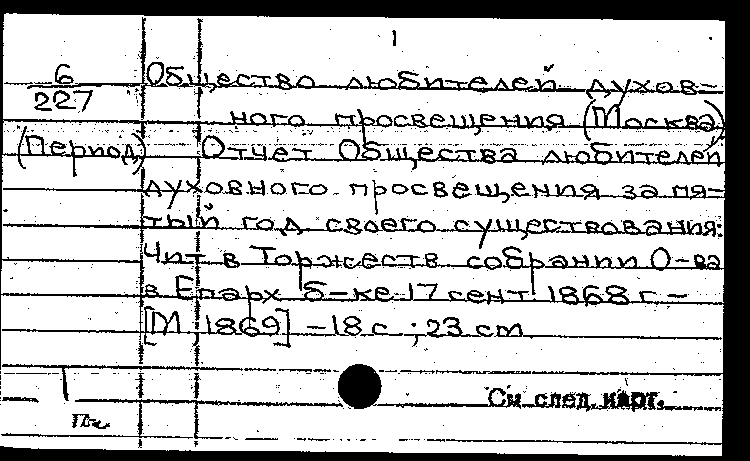 1
6/227 Общество любителей духов-
ного просвещения (Москва)
(Период) Отчет Общества любителей
духовного просвещения за пя-
тый год своего существования:
Чит в Торжеств собрании О-ва
в Епарх б-ке 17 сент 1868 г. –
[М, 1869] – 18 с ; 23 см
См след. карт.
1